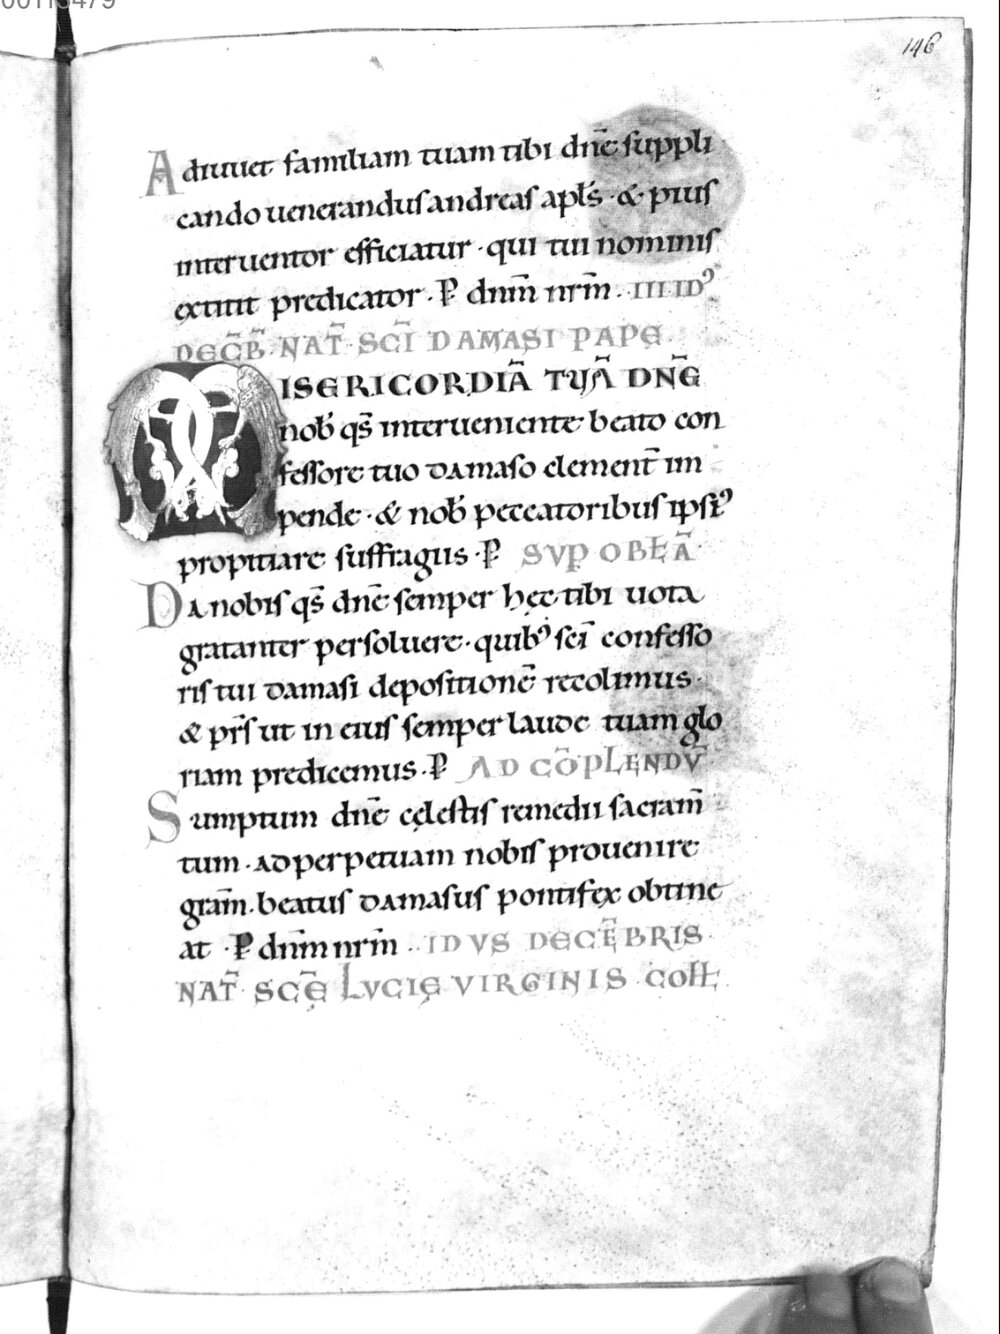 00113479
146
Adiuuet familiam tuam tibi dñe suppli
cando uenerandus andreas apłs · & pius
interuentor efficiatur · qui tui nominis
extitit predicator · P dñm nrm̄ . III ID᾿
DECB̄ · NAT̄ · SCĪ DAMASI PAPE
MISERICORDIĀ TUĀ DNĒ
nob̄ qs̄ interueniente beato con
fessore tuo damaso clement̄ im
pende · & nob̄ peccatoribus ipsi᾿
propitiare suffragiis · P SUP OBŁĀ
Da nobis qs̄ dñe semper hęc tibi uota
gratanter persoluere · quib᾿ scī confesso
ris tui damasi depositionē recolimus ·
& pr̄s ut in eius semper laude tuam glo
riam predicemus · P AD CŌPLENDV̄
Sumptum dñe cęlestis remedii sacram̄
tum · ad perpetuam nobis prouenire
gram̄ . beatus damasus pontifex obtine
at · P dñm nrm̄ . IDVS DECĒBRIS
NAT̄ SCĘ̄ LVCIĘ VIRGINIS · COLŁ